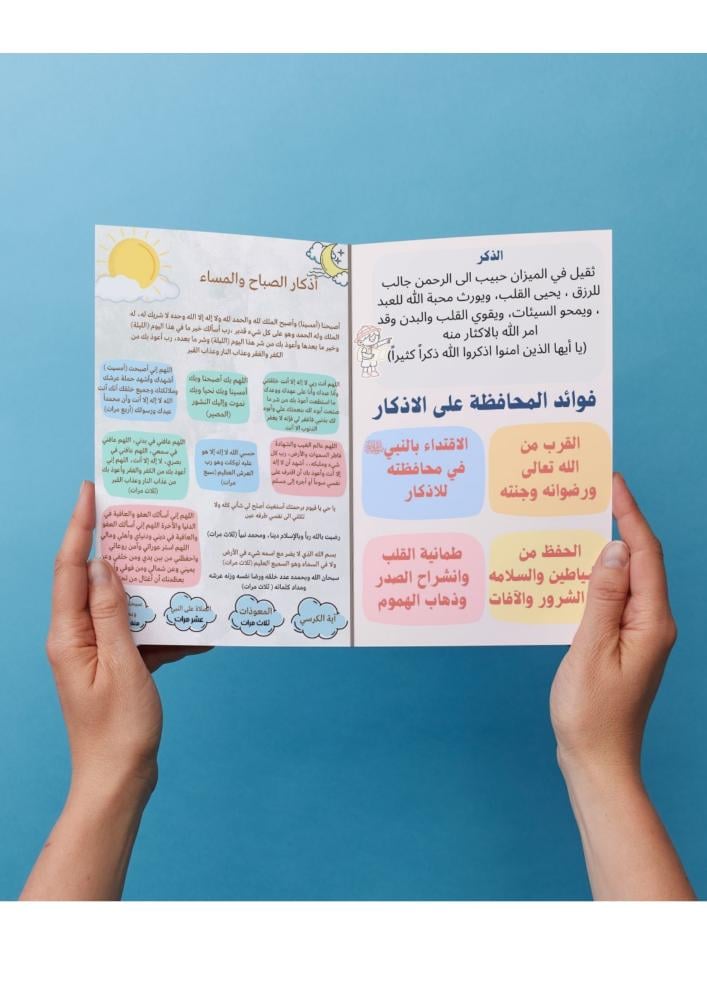 الذكر
ثقيل في الميزان حبيب الى الرحمن جالب
للرزق ، يحيى القلب، ويورث محبة الله للعبد
، ويمحو السيئات، ويقوي القلب والبدن وقد
امر الله بالاكثار منه
(يا أيها الذين امنوا اذكروا الله ذكراً كثيراً)
فوائد المحافظة على الاذكار
القرب من
الله تعالى
ورضوانه وجنته
الاقتداء بالنبي ﷺ
في محافظته
للاذكار
الحفظ من
والسلامه
الشرور والآفات
طمانية القلب
وانشراح الصدر
وذهاب الهموم
أذكار الصباح والمساء
أصبحنا (أمسينا) وأصبح الملك لله والحمد لله ولا إله إلا الله وحده لا شريك له، له
الملك وله الحمد وهو على كل شيء قدير ، رب أسألك خير ما في هذا اليوم (الليلة)
وخير ما بعدها وأعوذ بك من شر هذا اليوم (الليلة) وشر ما بعده، رب أعوذ بك من
الكفر والفقر وعذاب النار وعذاب القبر
اللهم أنت ربي لا إله إلا أنت خلقتني
وأنا عبدك وأنا على عهدك ووعدك
ما استطعت أعوذ بك من شر ما
صنعت أبوء لك بنعمتك علي وأبوء
لك بذنبي فاغفر لي فإنه لا يغفر
الذنوب الا أنت
اللهم بك أصبحنا وبك
أمسينا وبك نحيا وبك
نموت وإليك النشور
(المصير)
اللهم إني أصبحت (أمسيت )
أشهدك وأشهد حملة عرشك
وملائكتك وجميع خلقك أنك أنت
الله لا إله إلا أنت، وأن محمداً
عبدك ورسولك (أربع مرات)
اللهم عالم الغيب والشهادة
فاطر السموات والأرض، رب كل
شيء ومليكه، أشهد أن لا إله
إلا أنت وأعوذ بك أن اقترف على
نفسي سوءاً أو أجره إلى مسلم
حسبي الله لا إله إلا هو
عليه توكلت وهو رب
العرش العظيم (سبع
مرات)
اللهم عافني في بدني، اللهم عافني
في سمعي، اللهم عافني في
بصري، لا إله إلا أنت، اللهم إني
أعوذ بك من الكفر والفقر وأعوذ بك
من عذاب النار وعذاب القبر
(ثلاث مرات)
يا حي يا قيوم برحمتك أستغيث أصلح لي شأني كله ولا
تكلني الى نفسي طرفة عين
رضيت بالله رباً وبالإسلام دينا، ومحمد نبياً (ثلاث مرات)
بسم الله الذي لا يضر مع اسمه شيء في الأرض
ولا في السماء وهو السميع العليم (ثلاث مرات)
سبحان الله وبحمده عدد خلقه ورضا نفسه وزنه عرشه
ومداد كلماته ( ثلاث مرات)
اللهم إني أسألك العفو والعافية في
الدنيا والآخرة اللهم إني أسألك العفو
والعافية في ديني ودنياي وأهلي ومالي
اللهم استر عوراتي وآمن روعاتي
واحفظني من بين يدي ومن خلفي وعن
يميني وعن شمالي ومن فوقي
بعظمتك أن أغتال من
آية الكرسي
المعوذات
ثلاث مرات
الصلاة على النبي
عشر مرات